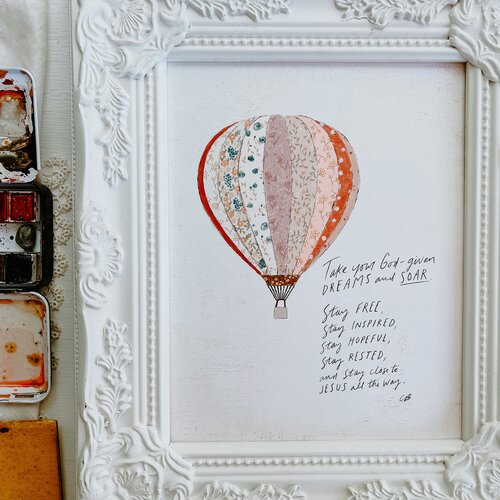 Take your God-given
DREAMS and SOAR
Stay FREE,
Stay INSPIRED,
Stay HOPEFUL,
Stay RESTED,
and Stay close to
JESUS all the way.